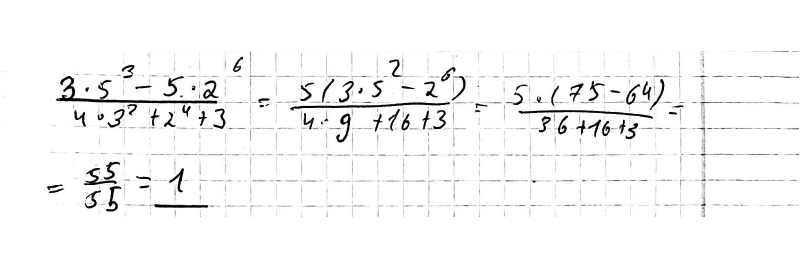 (3·5³ − 5·2⁶)/(4·3² + 2⁴ + 3) = 5(3·5² − 2⁶)/(4·9 + 16 + 3) = 5·(75 − 64)/(36 + 16 + 3) =
= 55/55 = 1